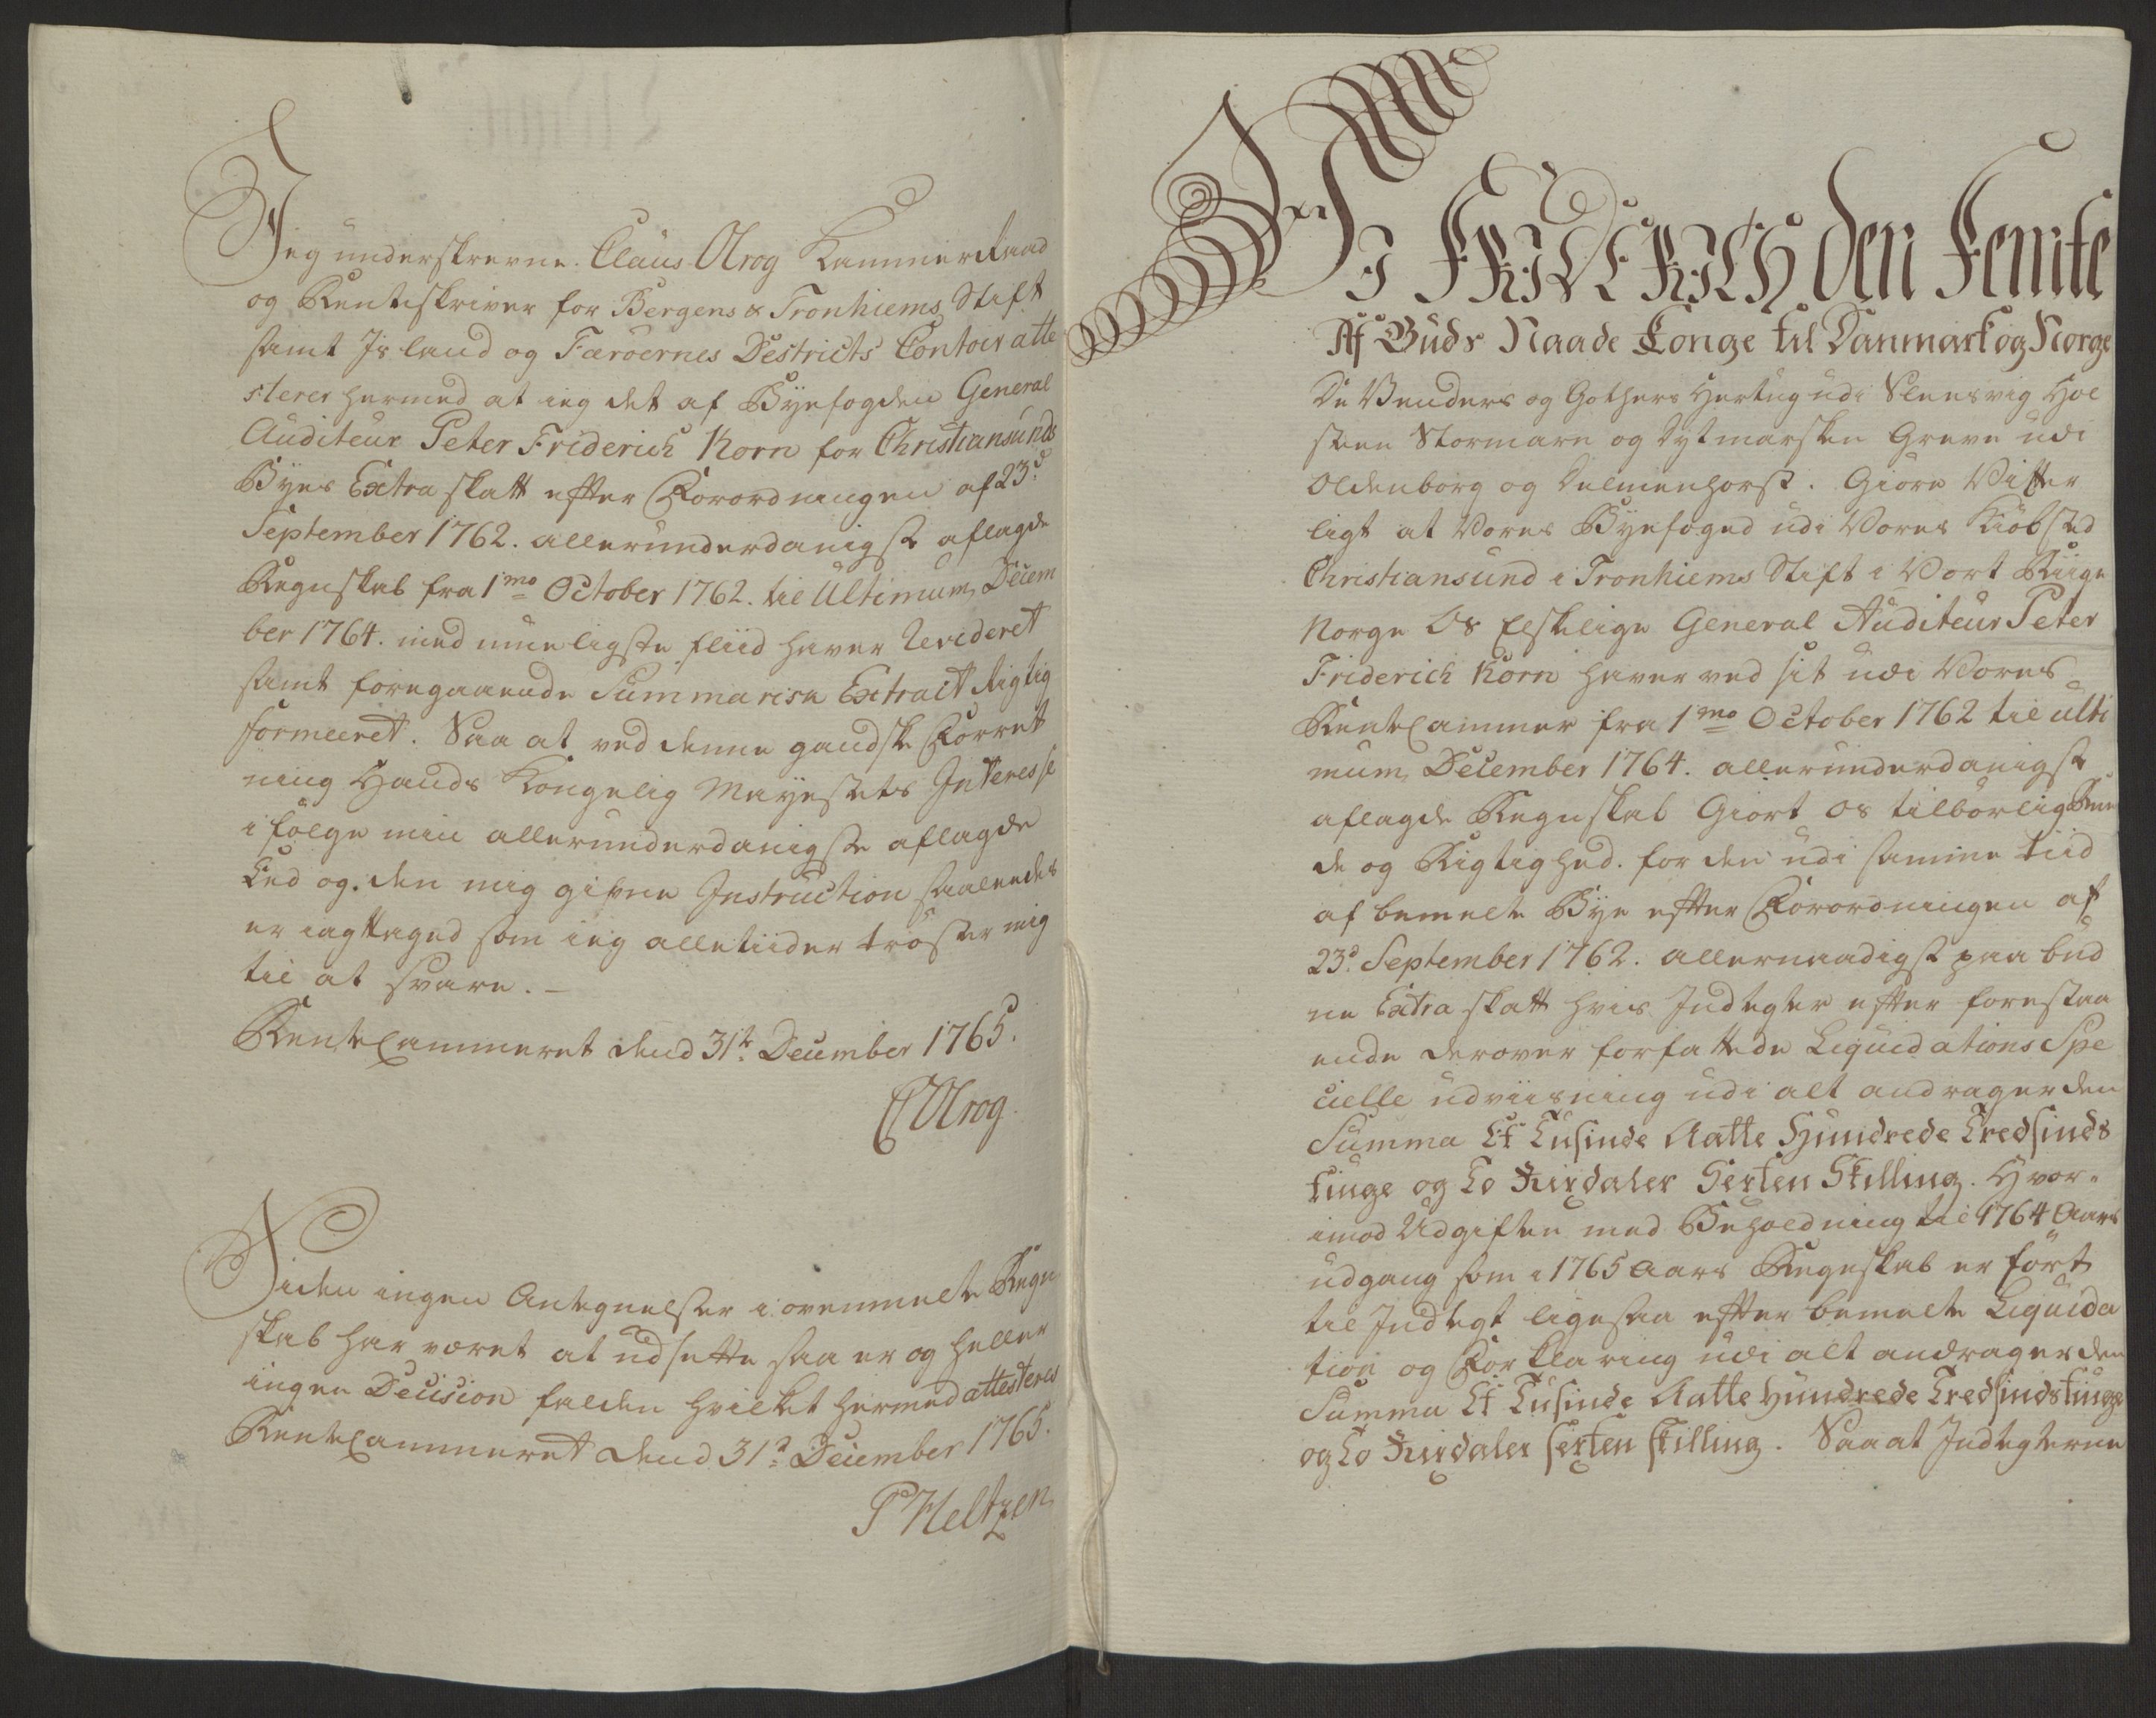 Jeg underskrevne Claus Olrog Kammer Raad
og Renteskriver for Bergens & Tronhiems Stift
samt Island og Færoernes Destricts Contoir atte
sterer hermed at ieg det af Byefogden General
Auditeur Peter Friderich Korn for Christiansunds
Byes Extra skatt efter Forordningen af 23d
September 1762. allerunderdanigste aflagde
Regnskab fra 1mo October 1762. til Ultimum Decem
ber 1764. med mueligste fliid haver Revideret
samt foregaaende Summariske Extract Rigtig
formeeret. Saa at ved denne gandske Forret
ning Hands Kongelig Mayestets Interesse
i følge min allerunderdanigste aflagde
Eed og den mig givne Instruction saaledes
er iagttaged som ieg alletiider trøster mig
til at svare. –
RenteCammeret dend 31te December 1765.
COlrog.
Siden ingen Antegnelser i ovenmelte Regn
skab har været at udsette saa er og heller
ingen Decision falden hvilket hermed attesteres
RenteCammeret dend 31te December 1765.
P Heltzen
Wi FRIDERICH den Femte
Af Guds Naade Konge til Danmark og Norge
De Venders og Gothers Hertug udi Sleesvig Hol
steen Stormarn og Dytmarsken Greve udi
Oldenborg og Delmenhorst. Giøre Vitter
ligt at Vores Byefoged udi Vores Kiøbsted
Christiansund i Tronhiems Stift i Vort Riige
Norge Os Elskelige General Auditeur Peter
Friderich Korn haver ved sit udi Vores
RenteCammer fra 1mo October 1762 til ulti
mum December 1764. allerunderdanigste
aflagde Regnskab Giort os tilbørlig Reene
de og Rigtighed. for den udi samme tiid
af bemelte Bye efter Forordningen af
23d September 1762. allernaadigst paabud
ne Extra skatt hvis Indtegter efter forestaa
ende derover forfattede Liquidations Spe
cielle udviisning udi alt andrager den
Summa Et Tusinde Aatte Hundrede Tredsinds
tiuge og To Rixdaler Sexten Skilling. Hvor-
imod Udgiften med Beholdning til 1764 Aars
udgang som i 1765 Aars Regnskab er ført
til Indtegt ligesaa efter bemelte Liquida
tion og Forklaring udi alt andrager den
Summa Et Tusinde Aatte Hundrede Tredsindstiuge
og To Rixdaler sexten skilling. Saa at Indtegterne